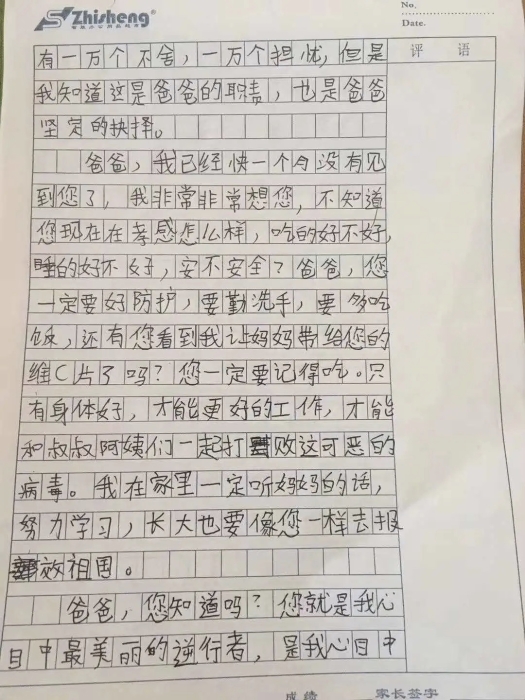 Zhisheng
No.
Date.
评 语
有一万个不舍，一万个担忧，但是
我知道这是爸爸的职责，也是爸爸
坚定的抉择。
爸爸，我已经快一个月没有见
到您了，我非常非常想您，不知道
您现在在孝感怎么样，吃的好不好，
睡的好不好，安不安全？爸爸，您
一定要好防护，要勤洗手，要多吃
饭，还有您看到我让妈妈带给您的
维C片了吗？您一定要记得吃。只
有身体好，才能更好的工作，才能
和叔叔阿姨们一起打败这可恶的
病毒。我在家里一定听妈妈的话，
努力学习，长大也要像您一样去报
效祖国。
爸爸，您知道吗？您就是我心
目中最美丽的逆行者，是我心目中
成绩 家长签字